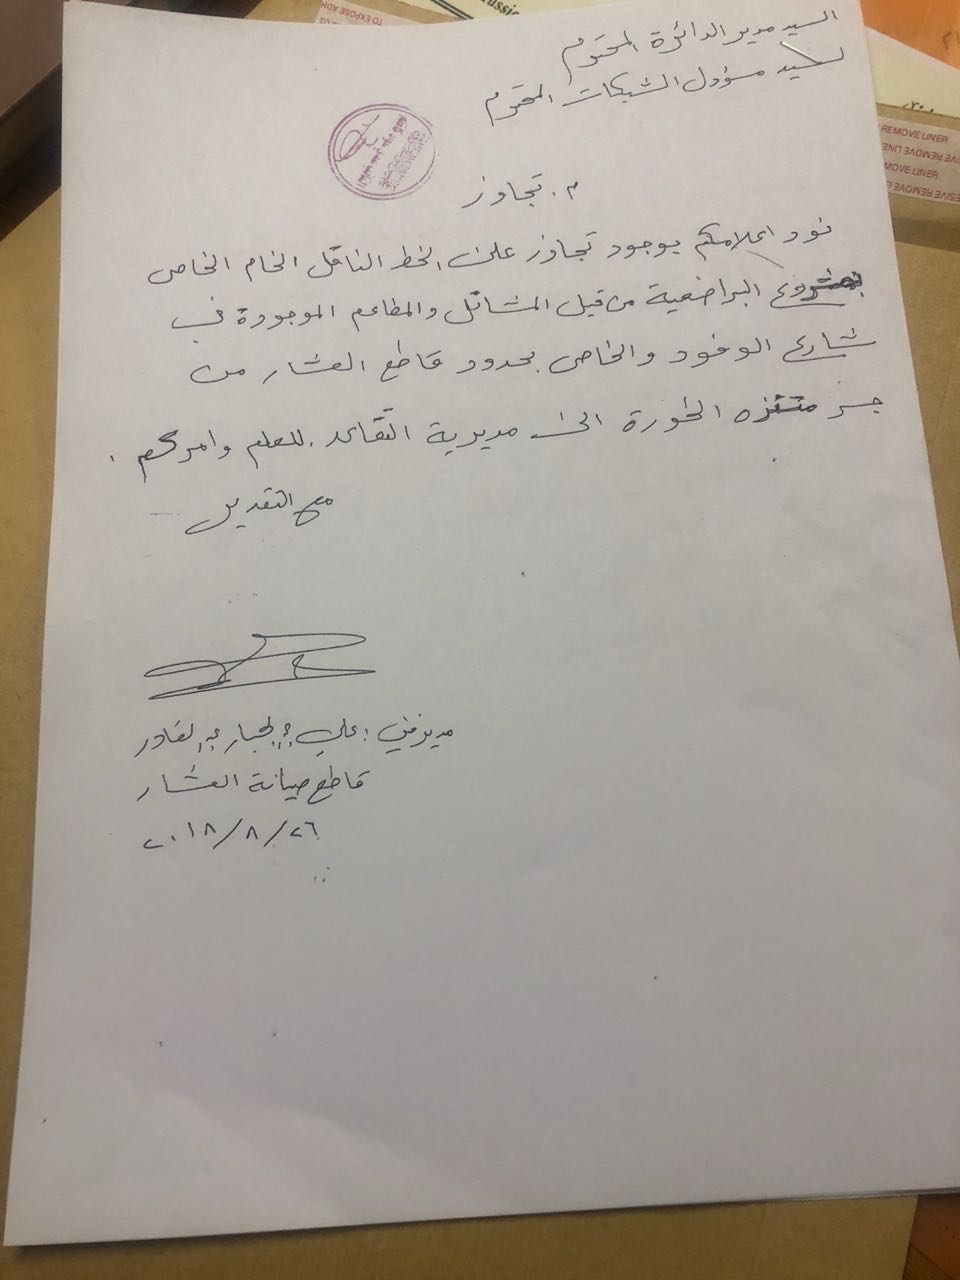 السيد مدير الدائرة المحترم
السيد مسؤول الشبكات المحترم
م. تجاوز
نود اعلامكم بوجود تجاوز على الخط الناقل الخام الخاص
بمشروع البراضعية من قبل المشاتل والمطاعم الموجودة في
شارع الوفود والخاص بحدود قاطع العشار من
جسر متنزه الخورة الى مديرية التقاعد. للعلم وامركم.
مع التقدير
مدير فني: علي عبد الجبار عبد القادر
قاطع صيانة العشار
٢٠١٨/٨/٢٦
REMOVE LINER